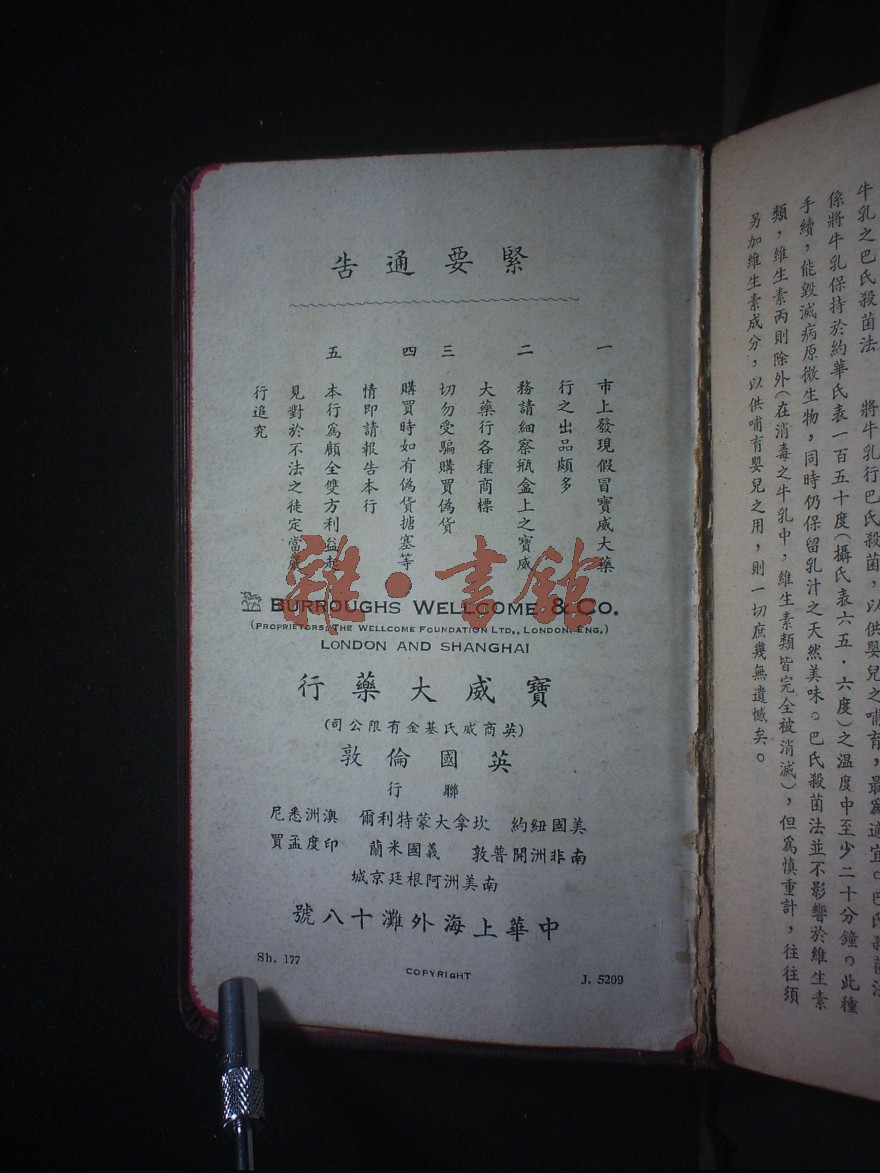 牛乳之巴氏殺菌法　將牛乳行巴氏殺菌，以供嬰兒之哺育，最為適宜。巴氏殺菌法
係將牛乳保持於約華氏表一百五十度(攝氏表六五·六度)之溫度中至少二十分鐘。此種
手續，能毀滅病原微生物，同時仍保留乳汁之天然美味。巴氏殺菌法並不影響於維生素
類，維生素丙則除外(在消毒之牛乳中，維生素類皆完全被消滅)，但爲慎重計，往往須
另加維生素成分，以供哺育嬰兒之用，則一切庶幾無遺憾矣。
緊要通告
一 市上發現假冒寶威大藥
行之出品頗多
二 務請細察瓶盒上之寶威
大藥行各種商標
三 切勿受騙購買偽貨
四 購買時如有偽貨搪塞等
情即請報告本行
五 本行爲顧全雙方利益起
見對於不法之徒定當嚴
行追究
雜·書館
BURROUGHS WELLCOME & CO.
(PROPRIETORS: THE WELLCOME FOUNDATION LTD., LONDON, ENG.)
LONDON AND SHANGHAI
寶威大藥行
(英商威氏基金有限公司)
英國倫敦
聯行
美國紐約 坎拿大蒙特利爾 澳洲悉尼
南非洲開普敦 義國米蘭 印度孟買
南美洲阿根廷京城
中華上海外灘十八號
Sh. 177
COPYRIGHT
J. 5209